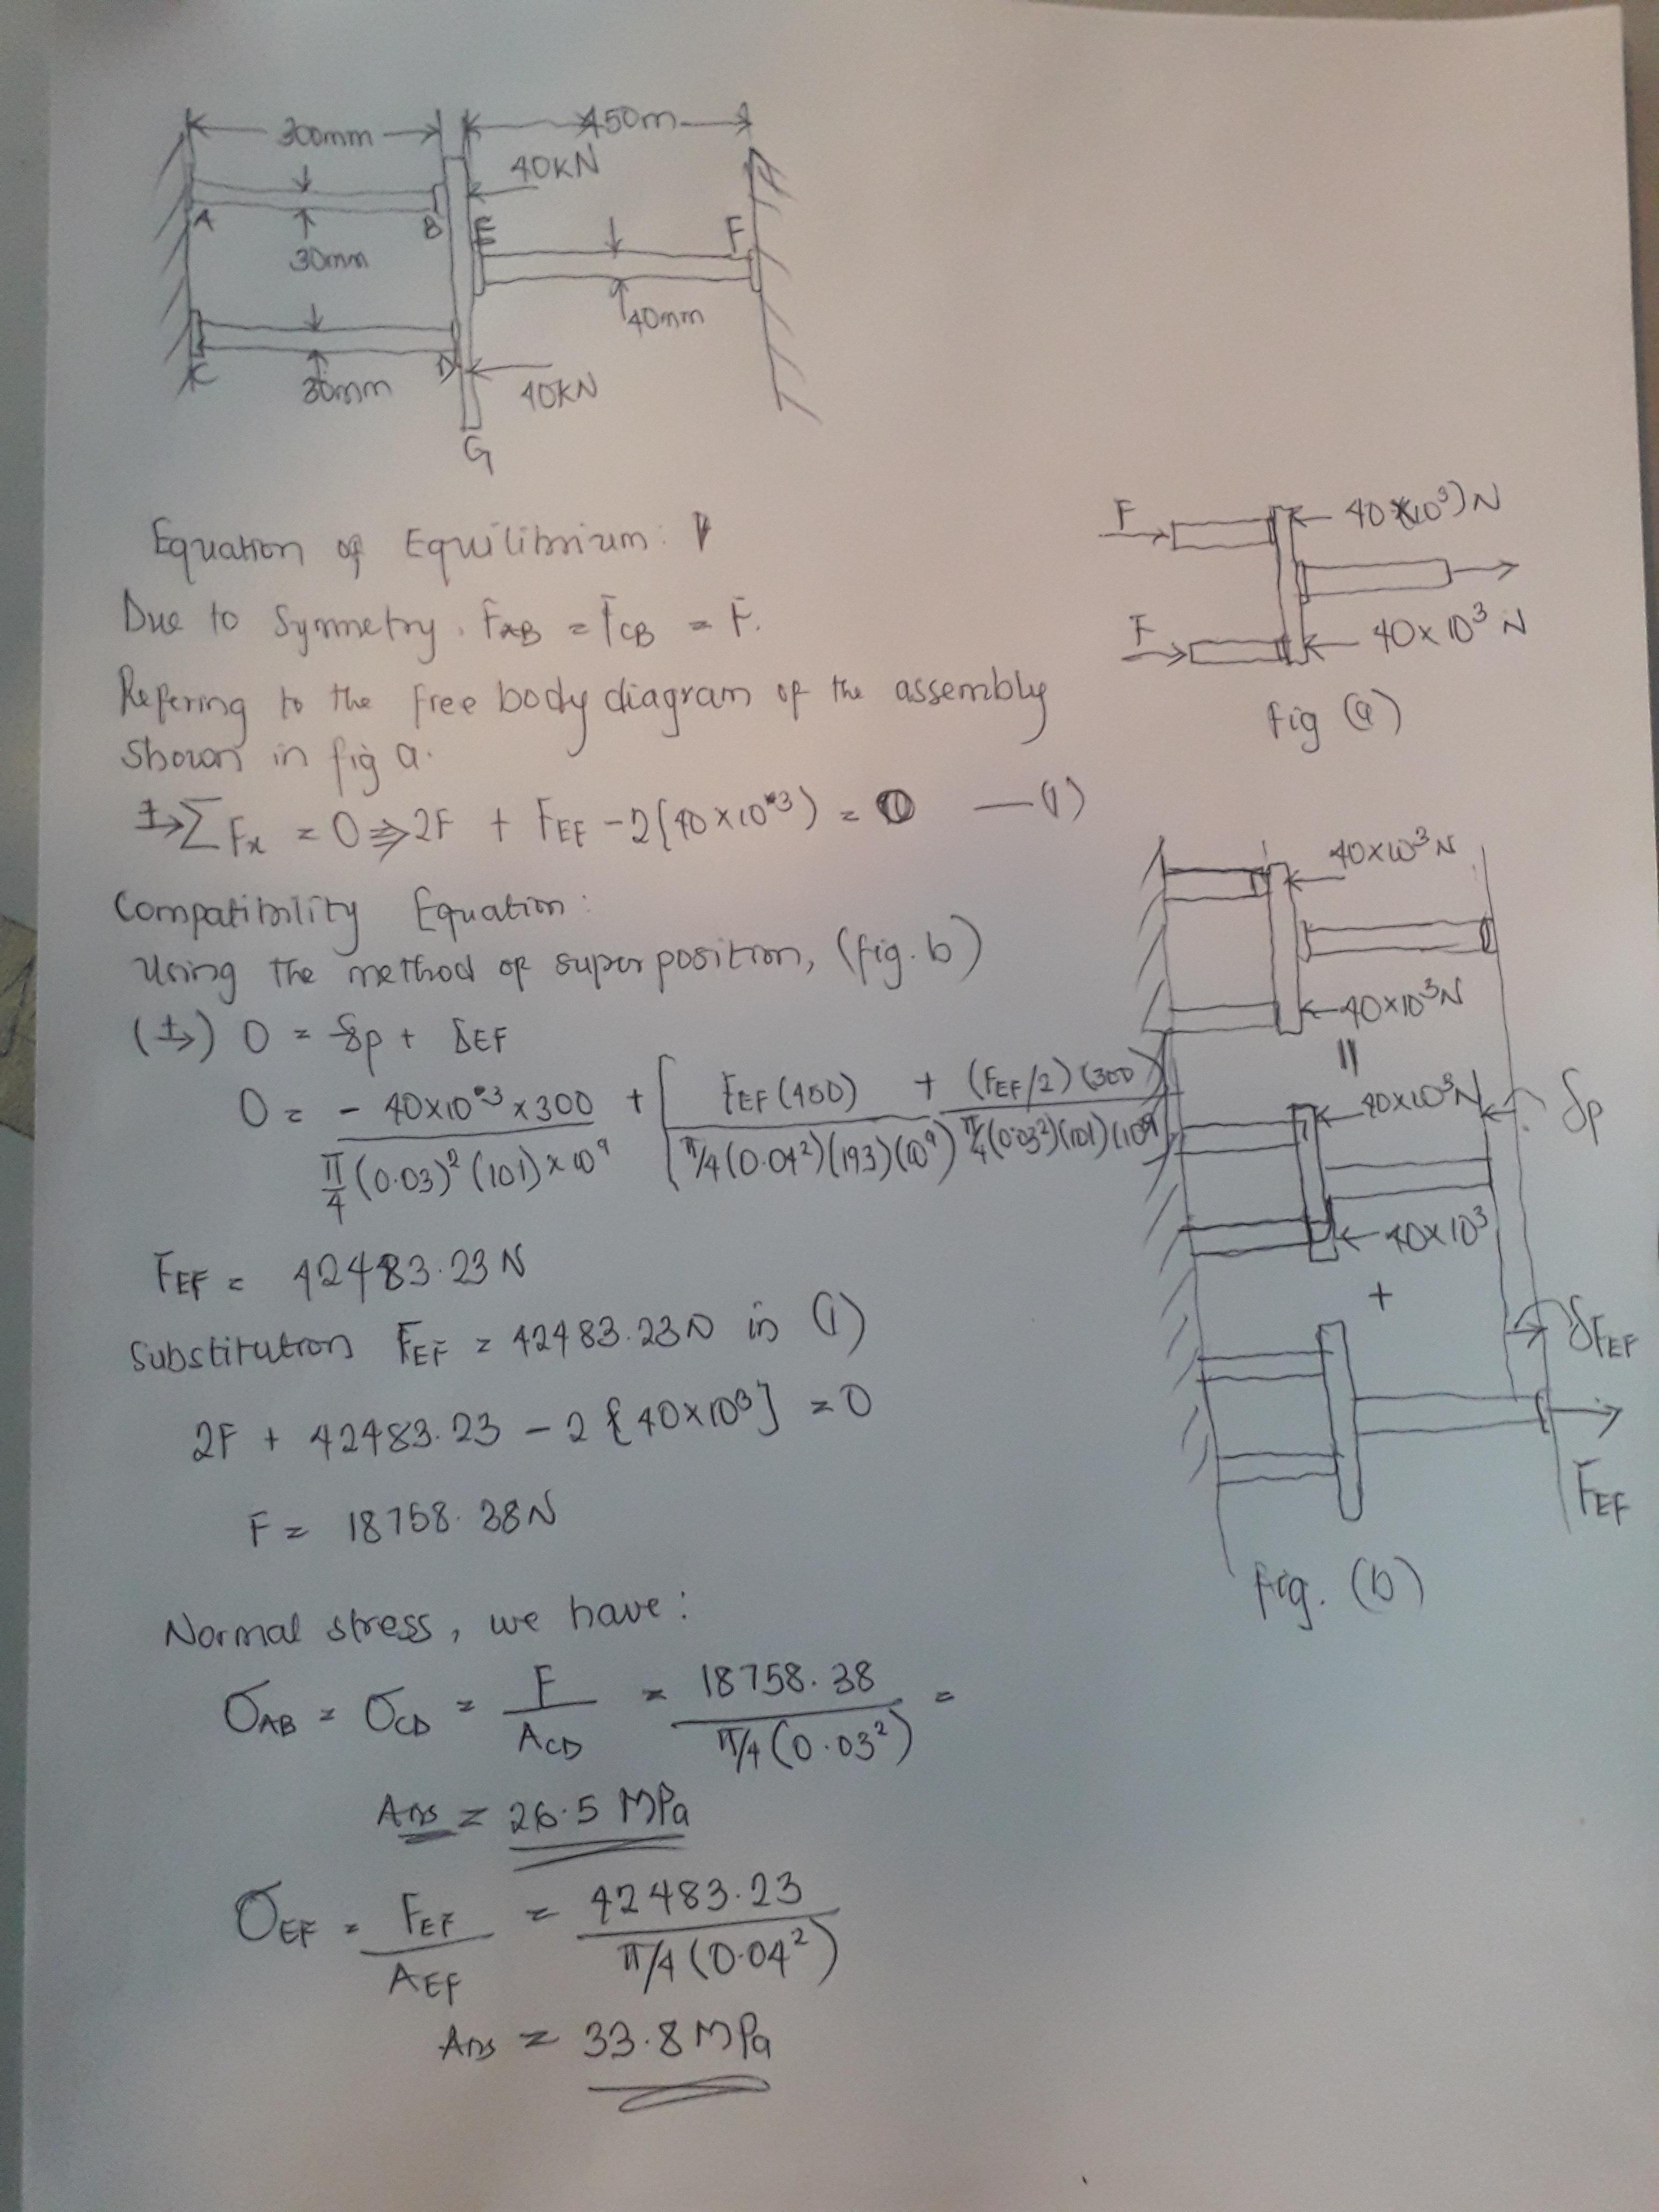 300mm
450m
40KN
A
B
E
F
30mm
40mm
C
D
30mm
40KN
G
Equation of Equilibrium:
Due to Symmetry, FAB = FCB = F.
Refering to the free body diagram of the assembly
Shown in fig a.
+→ ΣFx = 0 ⇒ 2F + FEF - 2(40×10³) = 0 —(1)
F
40(10³)N
F
40×10³ N
fig (a)
Compatibility Equation:
Using the method of superposition, (fig. b)
(+→) 0 = δp + δEF
0 = - 40×10³×300 / π/4 (0.03)² (101)×10⁹ + [ FEF(450) / π/4(0.04²)(193)(10⁹) + (FEF/2)(300) / π/4(0.03²)(101)(10⁹)
FEF = 42483.23N
Substitution FEF = 42483.23N in (1)
2F + 42483.23 - 2{40×10³] = 0
F = 18758.38N
40×10³N
40×10³N
=
40×10³N
δp
40×10³
+
δFEF
FEF
Fig. (b)
Normal stress, we have:
σAB = σCD = F / ACD = 18758.38 / π/4(0.03²) =
Ans = 26.5 MPa
σEF = FEF / AEF = 42483.23 / π/4(0.04²)
Ans = 33.8MPa